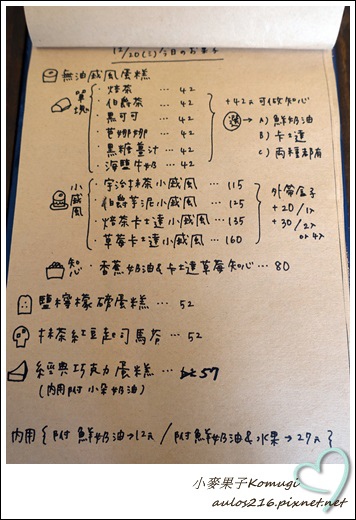 12/20(三)今日のお菓子
無油戚風蛋糕
單塊
・焙茶 … 42
・伯爵茶 … 42
・黑可可 … 42
・芭娜娜 … 42
・黑糖薑汁 … 42
・海鹽牛奶 … 42
+42元可做知心
選→ A) 鮮奶油
B) 卡士達
C) 兩種都有
小戚風
・宇治抹茶小戚風 … 115
・伯爵芋泥小戚風 … 125
・焙茶卡士達小戚風 … 135
・草莓卡士達小戚風 … 160
外帶盒子
+20/1入
+30/2入
or 4入
知心
・香蕉奶油&卡士達草莓知心 … 80
鹽檸檬磅蛋糕 … 52
抹茶紅豆起司馬芬 … 52
經典巧克力蛋糕 … 57
(內用附小朵奶油)
內用{附鮮奶油→12元/附鮮奶油&水果→27元}
小麥菓子Komugi
aulos216.pixnet.net